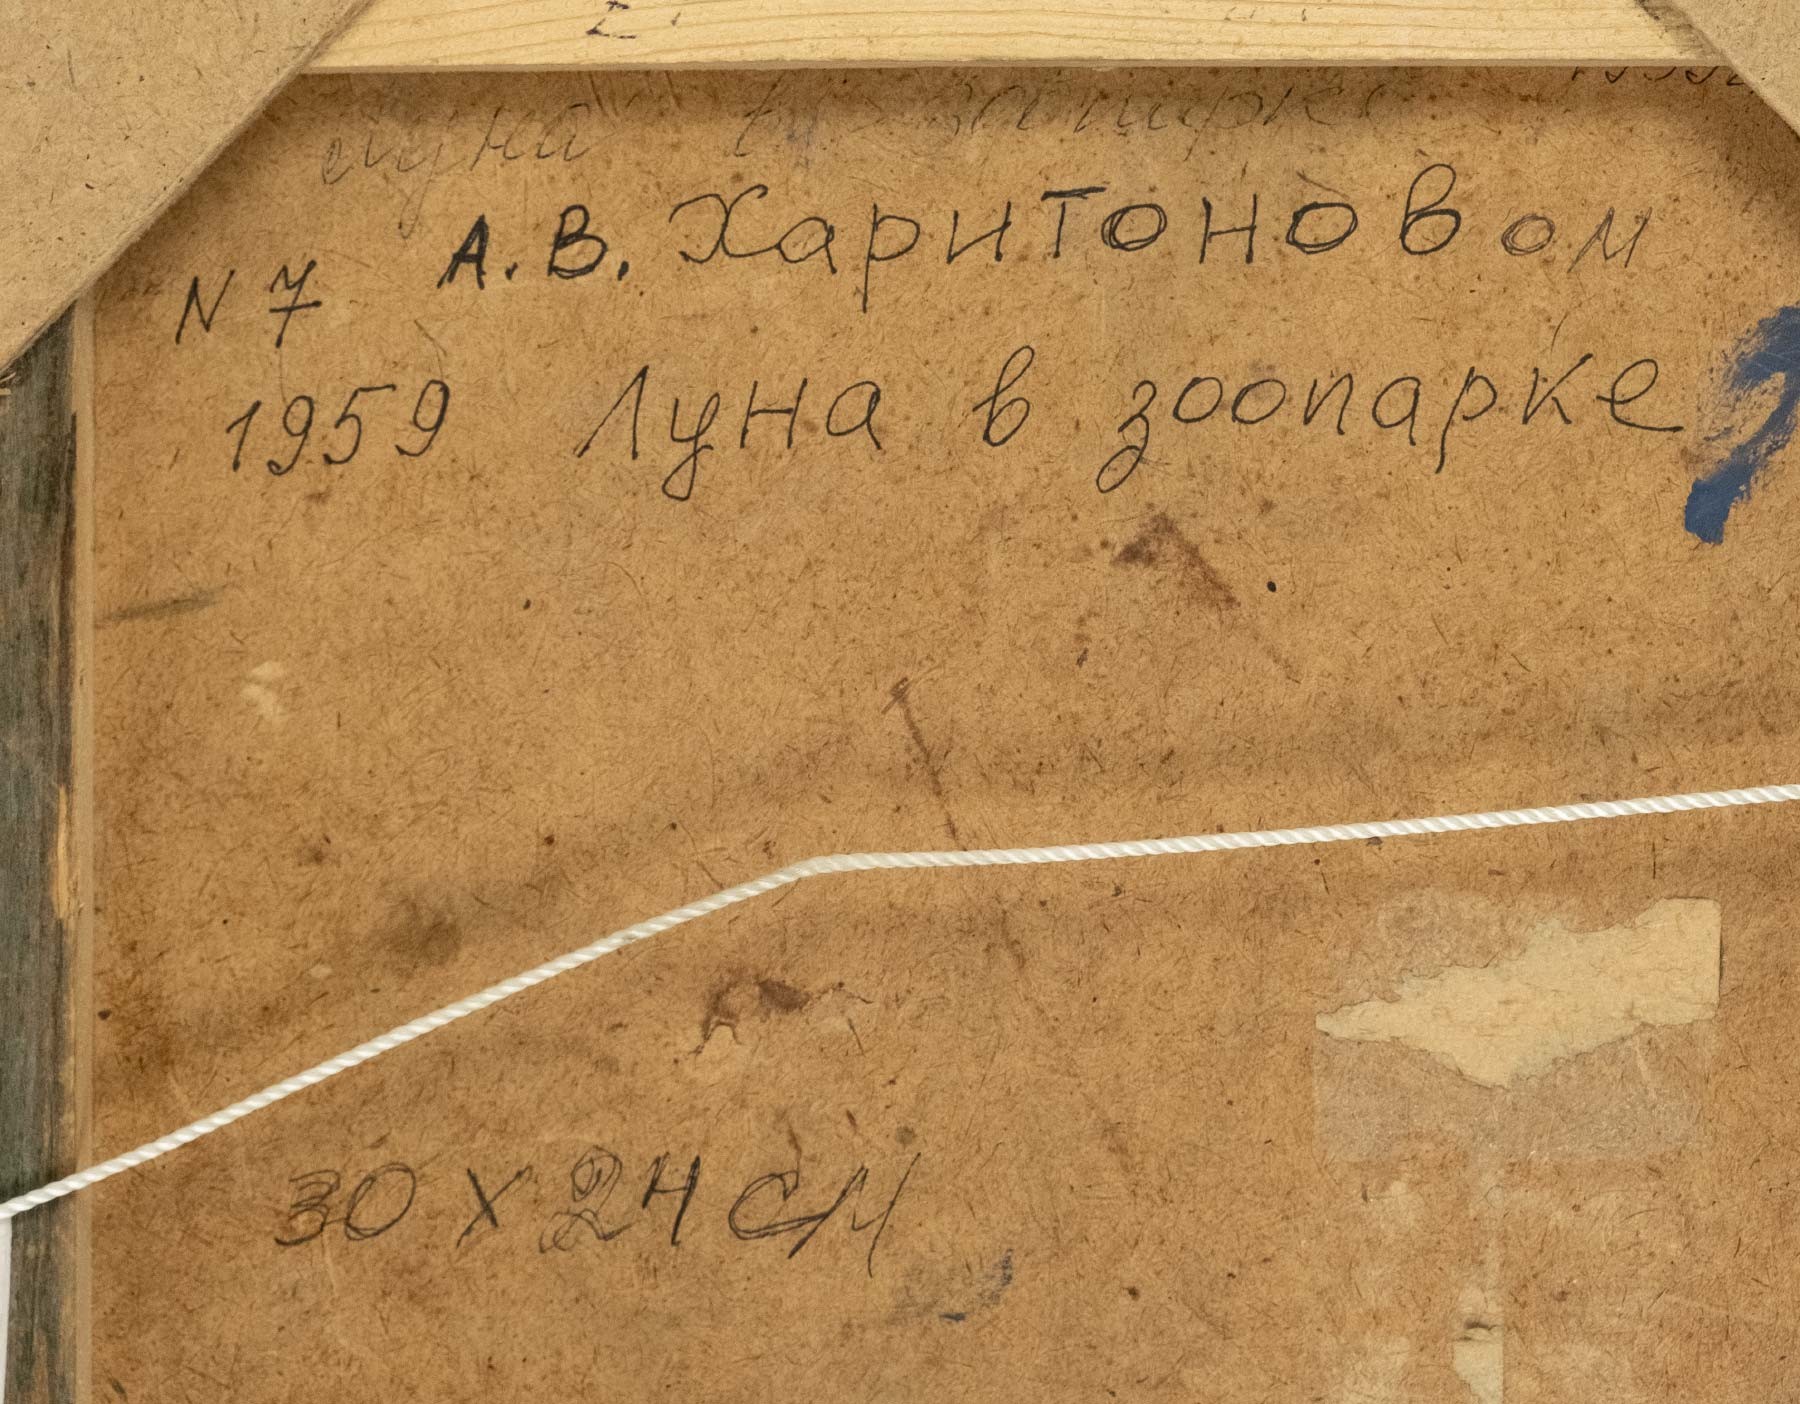 Луна в зоопарке
А.В. Харитоновом
N 7
1959 Луна в зоопарке
30 x 24 см